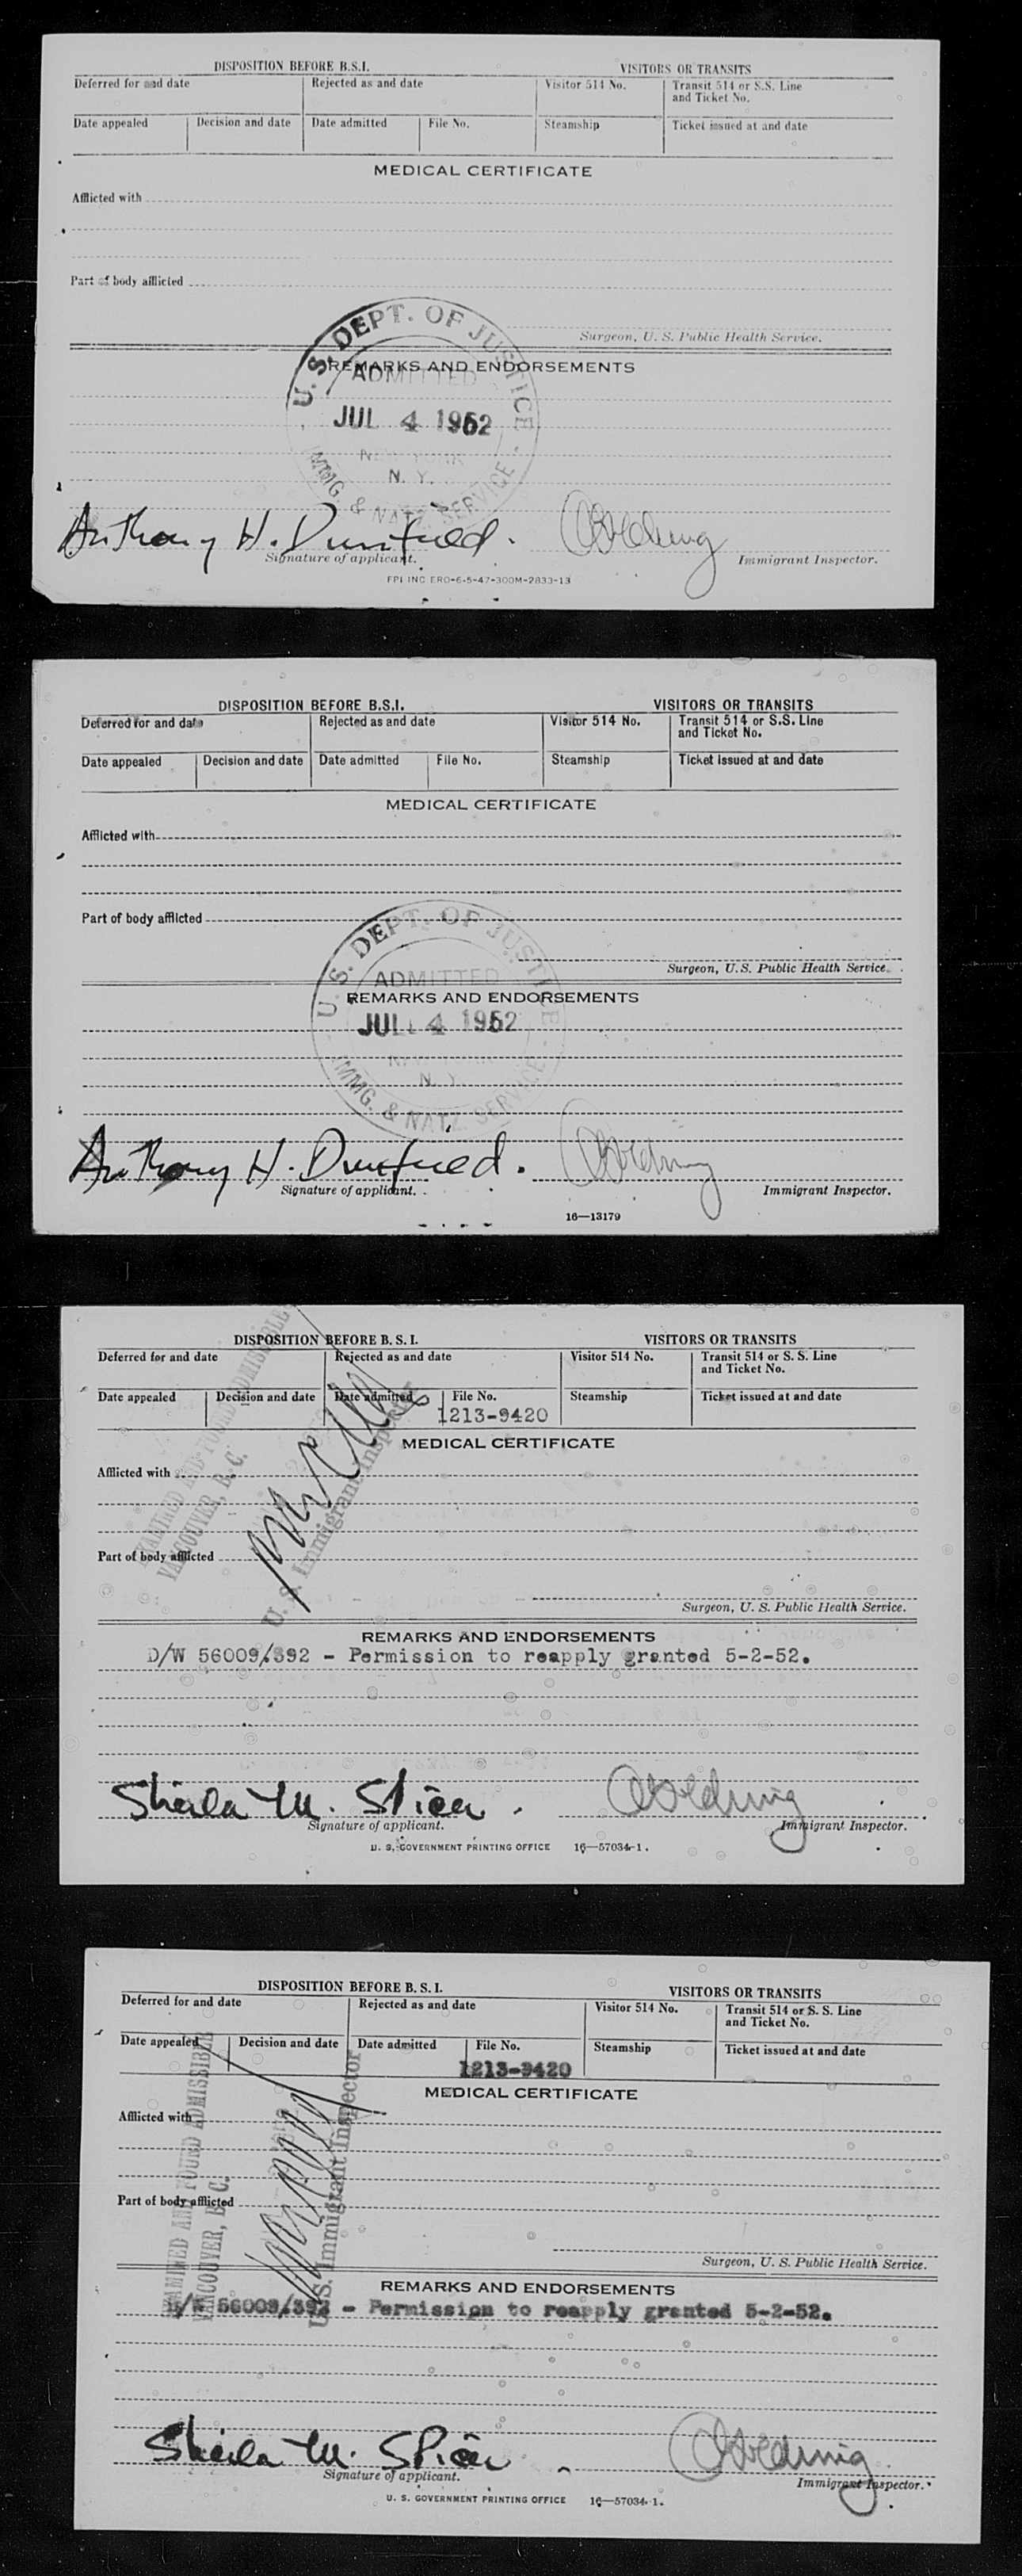 DISPOSITION BEFORE B.S.I. VISITORS OR TRANSITS
Deferred for and date Rejected as and date Visitor 514 No. Transit 514 or S.S. Line
and Ticket No.
Date appealed Decision and date Date admitted File No. Steamship Ticket issued at and date
MEDICAL CERTIFICATE
Afflicted with
Part of body afflicted
Surgeon, U. S. Public Health Service.
REMARKS AND ENDORSEMENTS
U. S. DEPT. OF JUSTICE
ADMITTED
JUL 4 1952
NEW YORK
N. Y.
IMMG. & NATZ. SERVICE
Anthony H.
Signature of applicant. Immigrant Inspector.
FPI INC ERO-6-5-47-300M-2833-13
DISPOSITION BEFORE B.S.I. VISITORS OR TRANSITS
Deferred for and date Rejected as and date Visitor 514 No. Transit 514 or S.S. Line
and Ticket No.
Date appealed Decision and date Date admitted File No. Steamship Ticket issued at and date
MEDICAL CERTIFICATE
Afflicted with
Part of body afflicted
Surgeon, U.S. Public Health Service.
U. S. DEPT. OF JUSTICE
ADMITTED
REMARKS AND ENDORSEMENTS
JUL 4 1952
NEW YORK
N. Y.
IMMG. & NATZ. SERVICE
Anthony H.
Signature of applicant. Immigrant Inspector.
16—13179
DISPOSITION BEFORE B. S. I. VISITORS OR TRANSITS
Deferred for and date Rejected as and date Visitor 514 No. Transit 514 or S. S. Line
and Ticket No.
Date appealed Decision and date Date admitted File No. Steamship Ticket issued at and date
1213-9420
MEDICAL CERTIFICATE
Afflicted with
Part of body afflicted
EXAMINED AND FOUND ADMISSIBLE
VANCOUVER, B. C.
U. S. Immigrant Inspector
Surgeon, U. S. Public Health Service.
REMARKS AND ENDORSEMENTS
D/W 56009/392 - Permission to reapply granted 5-2-52.
Sheila M. Spicer
Signature of applicant. Immigrant Inspector.
U. S. GOVERNMENT PRINTING OFFICE 16—57034-1.
DISPOSITION BEFORE B. S. I. VISITORS OR TRANSITS
Deferred for and date Rejected as and date Visitor 514 No. Transit 514 or S. S. Line
and Ticket No.
Date appealed Decision and date Date admitted File No. Steamship Ticket issued at and date
1213-9420
MEDICAL CERTIFICATE
Afflicted with
Part of body afflicted
EXAMINED AND FOUND ADMISSIBLE
VANCOUVER, B. C.
U. S. Immigrant Inspector
Surgeon, U. S. Public Health Service.
REMARKS AND ENDORSEMENTS
D/W 56009/392 - Permission to reapply granted 5-2-52.
Sheila M. Spicer
Signature of applicant. Immigrant Inspector.
U. S. GOVERNMENT PRINTING OFFICE 16—57034-1.